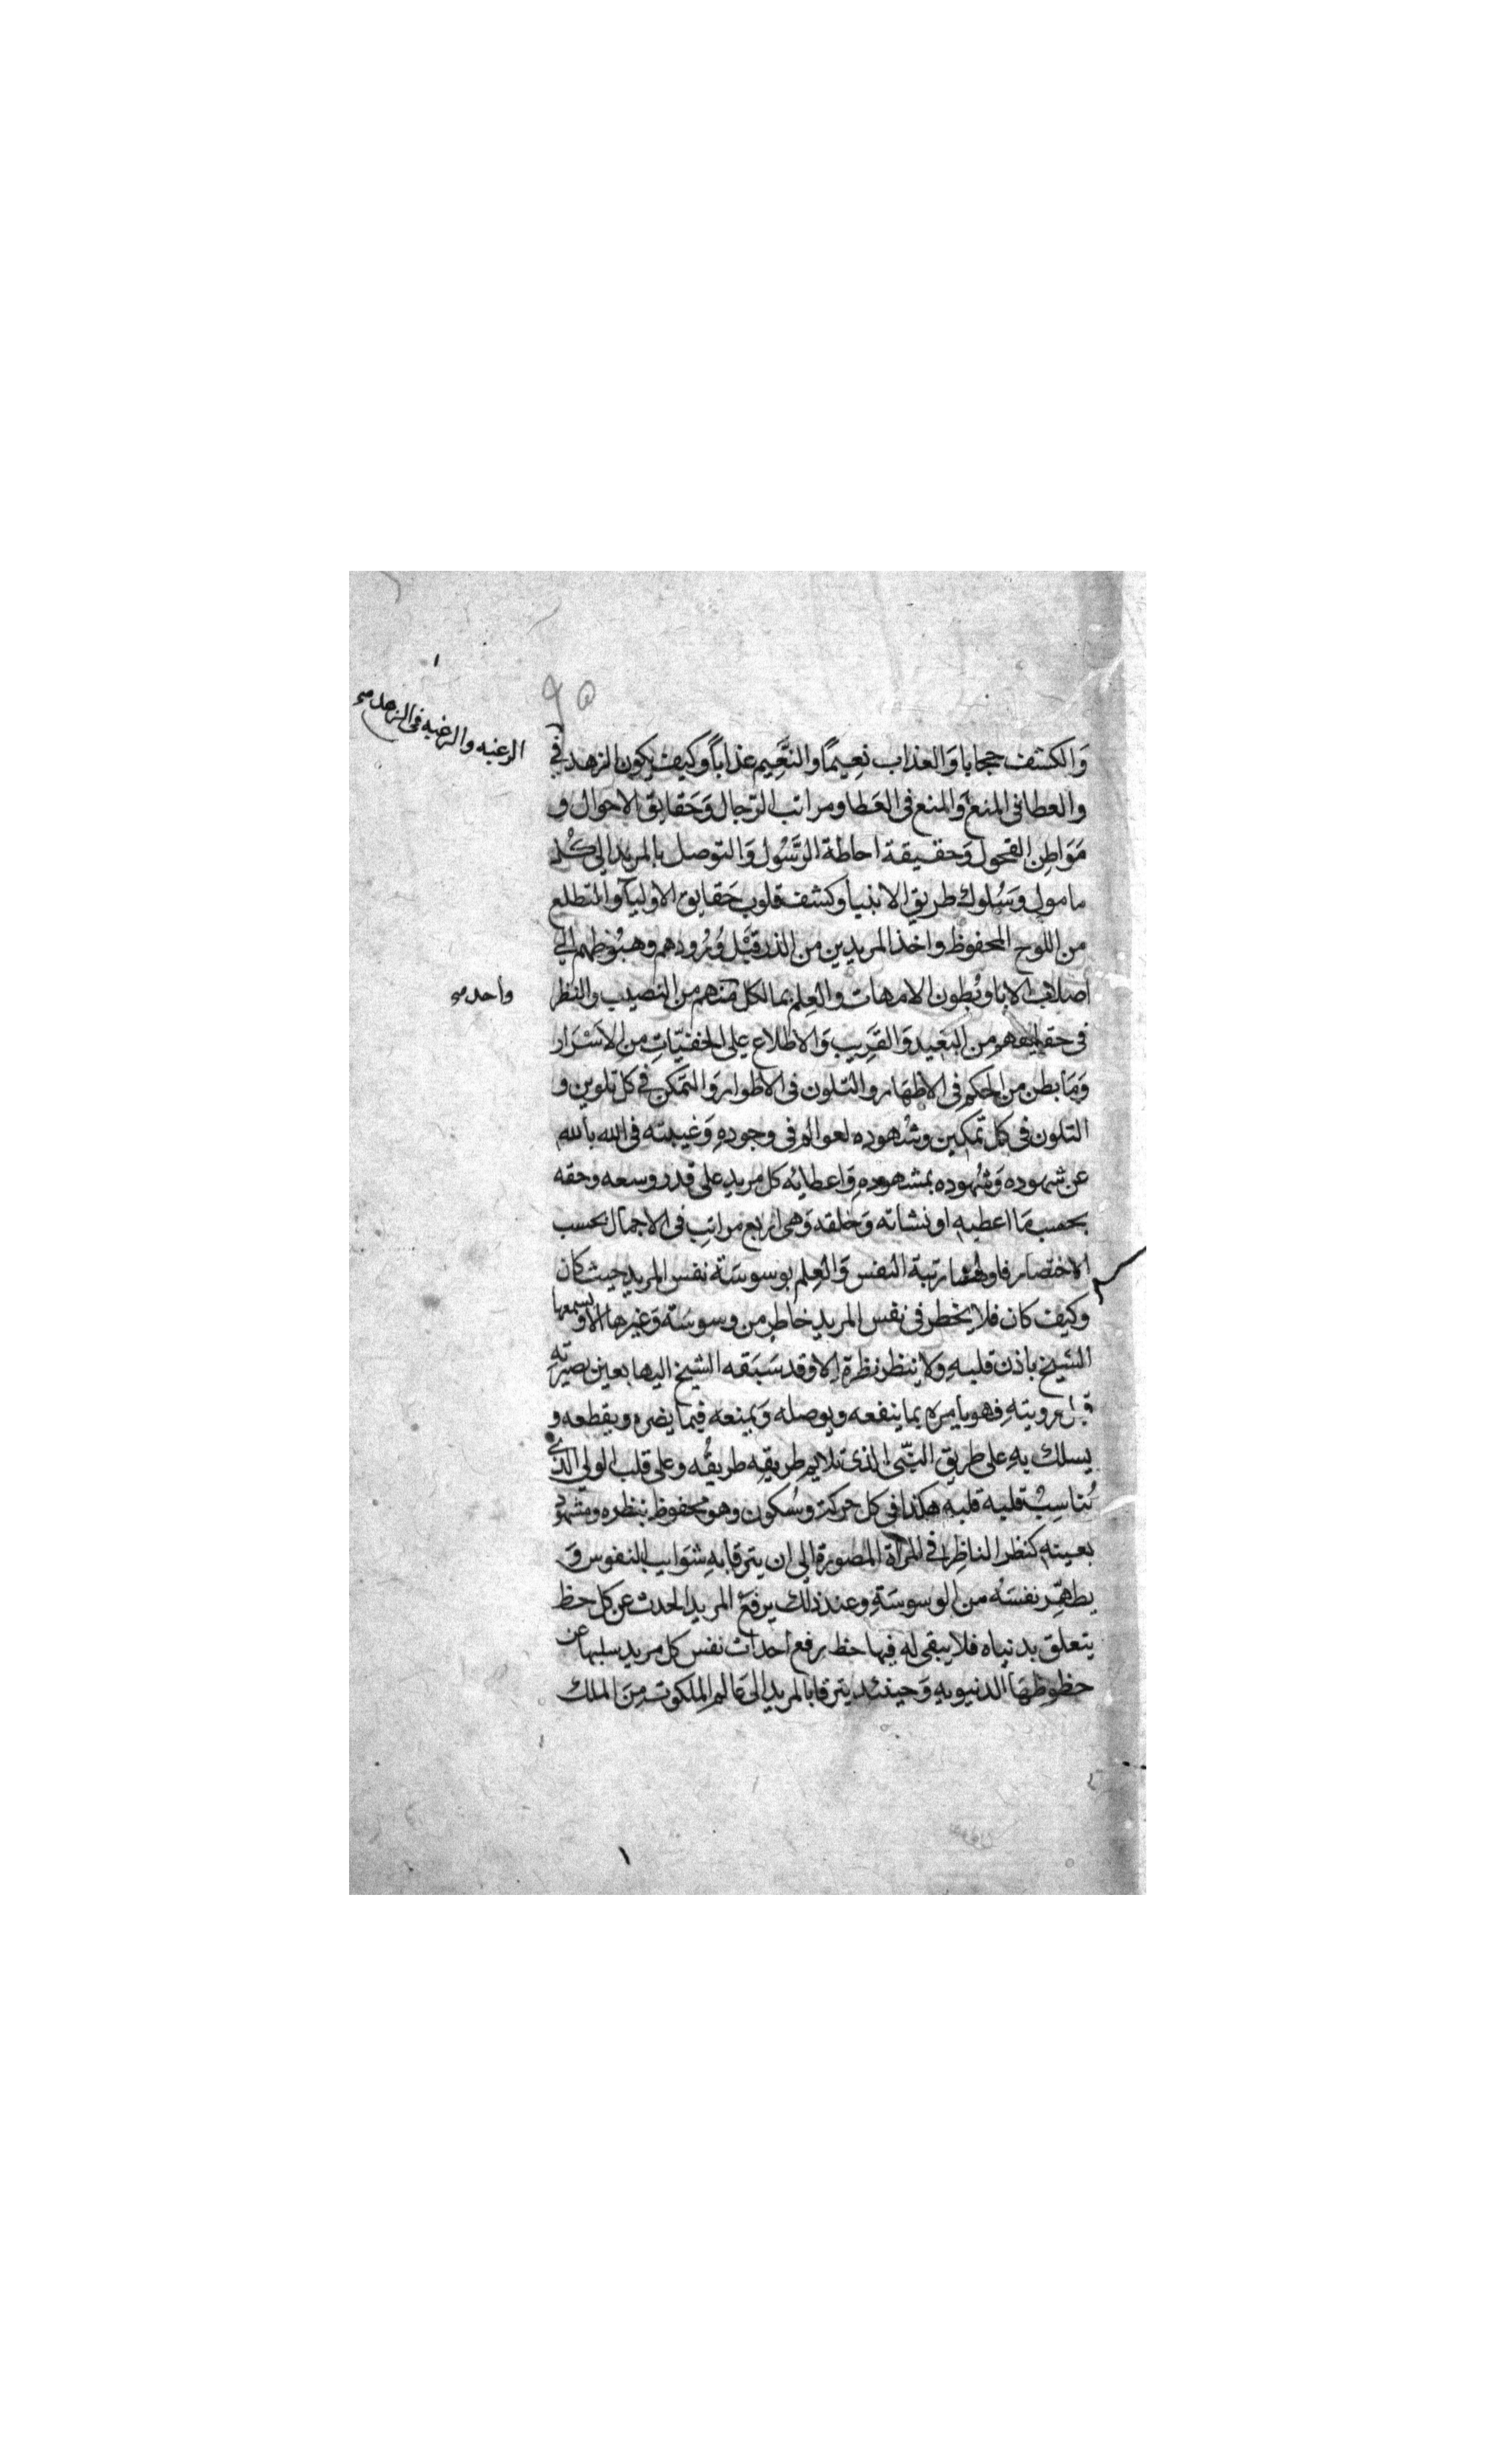 ٩٥
الرغبه والرغبه في الزهد صح
وَالكشف حجابا وَالعذاب نعِيمًا والنَّعِيم عذاباً وكيف يكون الزهد في
والعطا في المنع وَالمنع في العَطا ومراتب الرّجال وَحَقايق الاحوال و
مَوَاطِن الفحول وَحقيقة احاطة الرَّسُول وَالتوصل بالمريد الي كُل
مامول وَسُلوك طريق الانبيا وكشف قلوب حَقايق الاوليآ والمتطلع
من اللوح المحفوظ واخذ المريدين من الذر قبْل وُرُودهم وهبُوطهم الي
اصلاب الابا وبُطون الامهات والعِلم بما لكل منهم من النصيب والنظر
واحد صح
في حقايقهم من البَعيد وَالقَرِيب وَالاطلاع على الخفيّاتِ من الاسْرَار
وَمَا بطن من الحكم في الاظهَار والتلون في الاطوار وَالتمكن في كل تلوين و
التلون في كل تمكين وشُهوده لعوالم في وجودهِ وَغيبته في الله بالله
عن شهوده وَشُهوده بمشهودهِ وَاعطايه كل مريد على قدر وسعه وحقه
بحسب مَا اعطيه او نشاته وَخلقه وَهي اربع مراتب في الاجمال بحسب
الاختصار فاولها رتبة النفس وَالعِلم بوسوسَة نفس المريد حيث كان
وكيف كان فلا يخطر في نفس المريد خاطر من وسوسَة وَغيرها الا ويسمعها
الشيخ باذن قلبهِ ولا ينظر نظرة الا وقد سَبَقه الشيخ اليها بعين بصيرته
قبل رويتهِ فهو يامره بما ينفعه ويوصله وَيمنعه فيما يضره ويقطعه و
يسلك بهِ على طريق النبّي الذي تلايم طريقه طريقُه وعلى قلب الولي الذي
تُناسِبُ قلبه قلبه هكذا في كل حركة وسُكون وهو محفوظ بنظره ومشهود
بعينه كنظر الناظِر في المرآة المصورة الي ان يترقا بهِ شوَايب النفوس وَ
يطهّر نفسَهُ من الوسوسَةِ وعند ذلك يرفع المريد الحدث عن كل حظ
يتعلق بدنياه فلا يبقى له فيها حظ برفع احداث نفس كل مريد سلبها عن
حظوظهَا الدنيويهِ وَحينئد يترقا بالمريد الى عَالم الملكوت مِنَ الملك